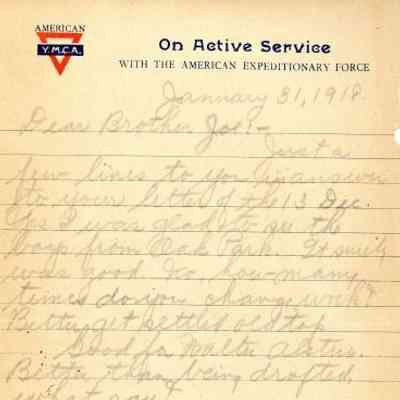 AMERICAN
Y.M.C.A.
On Active Service
WITH THE AMERICAN EXPEDITIONARY FORCE
January 31, 1918.
Dear Brother Joe:-
Just a
few lines to you in answer
to your letter of the 13 Dec.
Yes I was glad to see the
boys from Oak Park. It surely
was good. So, how many
times do you change work?
Better get settled old top
Good for Walter
Better than being drafted,
what say